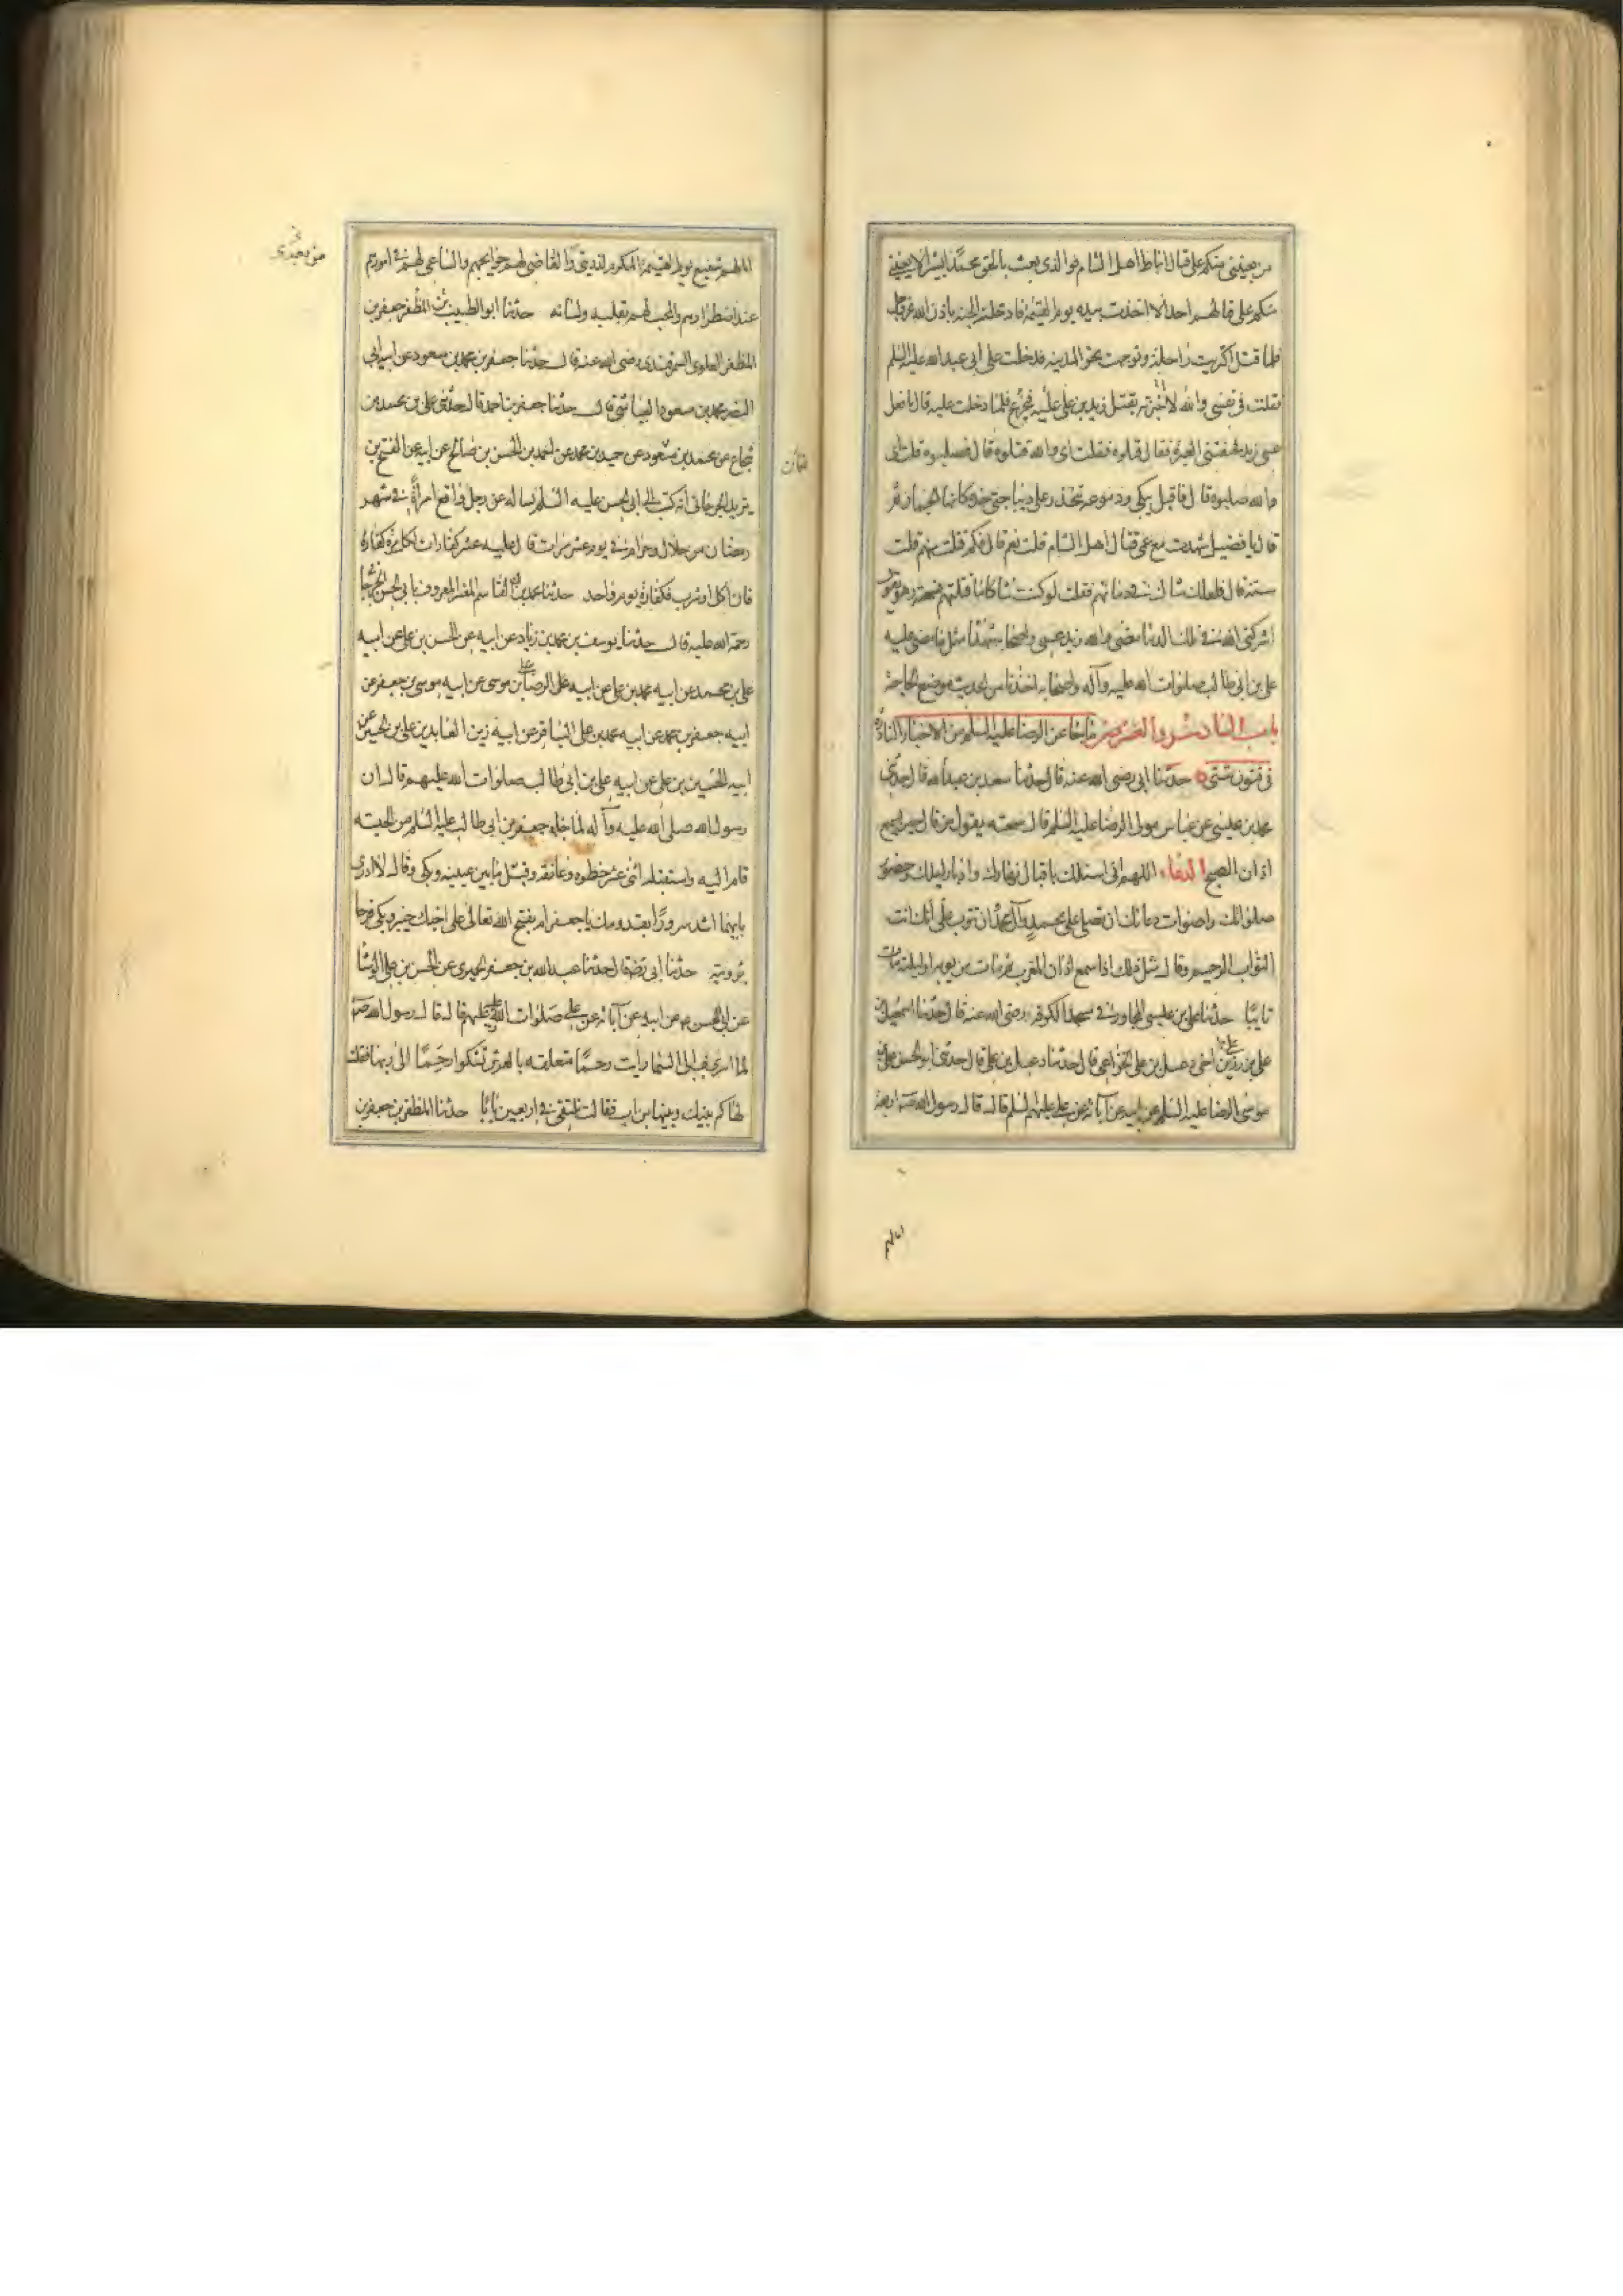 من يعينني منكم على قتال انباط اهل الشام فوالذى بعث بالحق محمدا بشيرا لا يعينني
منكم على قتالهم احد الا اخذت بيده يوم القيمة فادخلته الجنة باذن الله عز وجل
فلما قتل اكتريت راحلة وتوجهت نحو المدينة فدخلت على ابى عبد الله عليه السلم
فقلت فى نفسى والله لا اخبرته بقتل زيد بن على عليه فيجزع فلما دخلت عليه قال ما فعل
عمى زيد فخنقتنى العبرة فقال قتلوه فقلت اى والله قتلوه قال فصلبوه قلت اى
والله صلبوه قال فاقبل يبكى ودموعه تنحدر على
قال يا فضيل شهدت مع عمى قتال اهل الشام قلت نعم قال فكم قتلت منهم قلت
ستة قال فلعلك شاك فى دمائهم فقلت لو كنت شاكا ما قتلتهم فسمعته وهو يقول
اشركنى الله فى تلك الدماء مضى والله زيد عمى واصحابه شهدا مثل ما مضى عليه
على بن ابى طالب صلوات الله عليه وآله واصحابه اخذنا من الحديث موضع الحاجة
باب السادس والعشرين ما جاء عن الرضا عليه السلم من الاخبار النادرة
فى فنون شتى حدثنا ابى رضى الله عنه قال حدثنا سعد بن عبد الله قال حدثنى
محمد بن عيسى عن عباس مولى الرضا عليه السلم قال سمعته يقول من قال حين يسمع
اذان الصبح الدعاء اللهم انى اسئلك باقبال نهارك وادبار ليلك وحضور
صلواتك واصوات دعائك ان تصلى على محمد وآل محمد ان تتوب على انك انت
التواب الرحيم وقال مثل ذلك اذا سمع اذان المغرب ثم مات من يومه او ليلته مات
تايبا حدثنا على بن عيسى المجاور فى مسجد الكوفه رضى الله عنه قال حدثنا اسمعيل بن
على بن رزين اخى دعبل بن على الخزاعى قال حدثنا دعبل بن على قال حدثنى ابو الحسن على بن
موسى الرضا عليه السلم عن ابيه عن آبائه عن على عليهم السلم قال قال رسول الله ص اربعة
انا لهم
من بعدى
انا لهم شفيع يوم القيمة المكرم لذريتى والقاضى لهم حوايجهم والساعى لهم فى امورهم
عند اضطرارهم والمحب لهم بقلبه ولسانه حدثنا ابو الطيب المظفر جعفر بن
المظفر العلوى السمرقندى رضى الله عنه قال حدثنا جعفر بن محمد بن مسعود عن ابيه ابى
النضر محمد بن مسعود العياشى قال حدثنا جعفر بن احمد قال حدثنى على بن محمد بن
شجاع عن محمد بن عن حميد بن محمد عن احمد بن الحسن بن صالح عن ابيه عن الفتح بن
يزيد الجرجانى انه كتب الى ابى الحسن عليه السلم يساله عن رجل واقع امراة فى شهر
رمضان من حلال وحرام فى يوم عشر مرات قال عليه عشر كفارات لكل مرة كفارة
فان اكل او شرب فكفارة يوم واحد حدثنا محمد بن القاسم المفسر المعروف بابى الحسن الجرجانى
رحمة الله عليه قال حدثنا يوسف بن محمد بن زياد عن ابيه عن الحسن بن على عن ابيه
على بن محمد عن ابيه محمد بن على عن ابيه على الرضا بن موسى عن ابيه موسى بن جعفر عن
ابيه جعفر بن محمد عن ابيه محمد بن على الباقر عن ابيه زين العابدين على بن الحسين عن
ابيه الحسين بن على عن ابيه على بن ابى طالب صلوات الله عليهم قال ان
رسول الله صلى الله عليه وآله لما جاءه جعفر بن ابى طالب عليه السلم من الحبشه
قام اليه واستقبله اثنى عشر خطوه وعانقه وقبل ما بين عينيه وبكى وقال لا ادرى
بايهما اشد سرورا بقدومك يا جعفر ام بفتح الله تعالى على اخيك خيبر وبكى فرحا
برويته حدثنا ابى رض قال حدثنا عبد الله بن جعفر الحميرى عن الحسن بن على الوشا
عن ابى الحسن عن ابيه عن آبائه عن على صلوات الله عليهم قال قال رسول الله ص
لما اسرى بى الى السما رايت رحما متعلقه بالعرش تشكوا رحما الى ربها فقلت
لها كم بينك وبينها من اب فقالت نلتقى فى اربعين ابا حدثنا المظفر بن جعفر بن